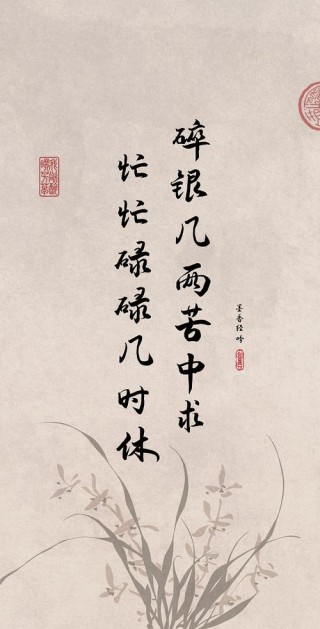 碎银几两苦中求
忙忙碌碌几时休
墨香经吟